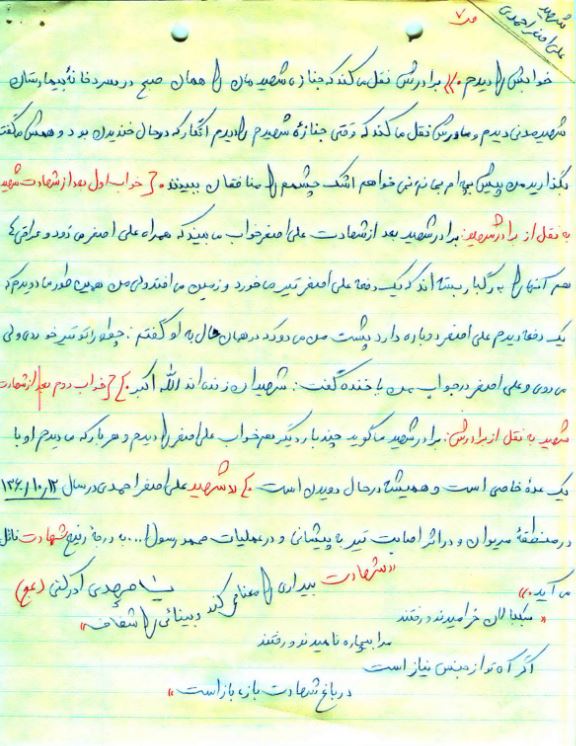 شهید
علی اصغر احمدی
ص ۷
خوابش را دیدم.» برادرش نقل می‌کند که جنازه شهیدمان را همان صبح در سردخانهٔ بیمارستان
شهید مدنی دیدم و مادرش نقل می‌کند که وقتی جنازهٔ شهیدم را دیدم انگار که در حال خندیدن بود و همش می‌گفت
بگذارید من پیش بچه‌ام بمانم نمی‌خواهم اشک چشمم را منافقان ببینند. { خواب اول بعد از شهادت شهید
به نقل از برادر شهید: برادر شهید بعد از شهادت علی اصغر خواب می‌بیند که همراه علی اصغر می‌دود و عراقی‌ها
هم آنها را به رگبار بسته‌اند که یک دفعه علی اصغر تیر می‌خورد و زمین می‌افتد ولی من همین طور می‌دویدم که
یک دفعه دیدم علی اصغر دوباره دارد پشت من می‌دود که در همان حال به او گفتم: چطور تو تیر خوردی ولی
می‌دوی و علی اصغر در جواب من با خنده گفت: شهیدان زنده‌اند الله اکبر.} { خواب دوم بعد از شهادت
شهید به نقل از برادرش: برادر شهید می‌گوید چند بار دیگر هم خواب علی اصغر را دیدم و هر بار که می‌دیدم او با
یک عدهٔ خاصی است و همیشه در حال دویدن است.} شهید علی اصغر احمدی در سال ۱۳۶۰/۱۰/۱۲
در منطقهٔ مریوان و در اثر اصابت تیر به پیشانی و در عملیات محمد رسول ا... به درجهٔ رفیع شهادت نائل
می‌آید.»
«شهادت بیداری را معنا می‌کند و بینائی را شفاف»
یا مهدی ادرکنی (عج)
«سبکبالان خرامیدند و رفتند
مرا بیچاره نامیدند و رفتند
اگر آه تو از جنس نیاز است
در باغ شهادت باز، باز است»